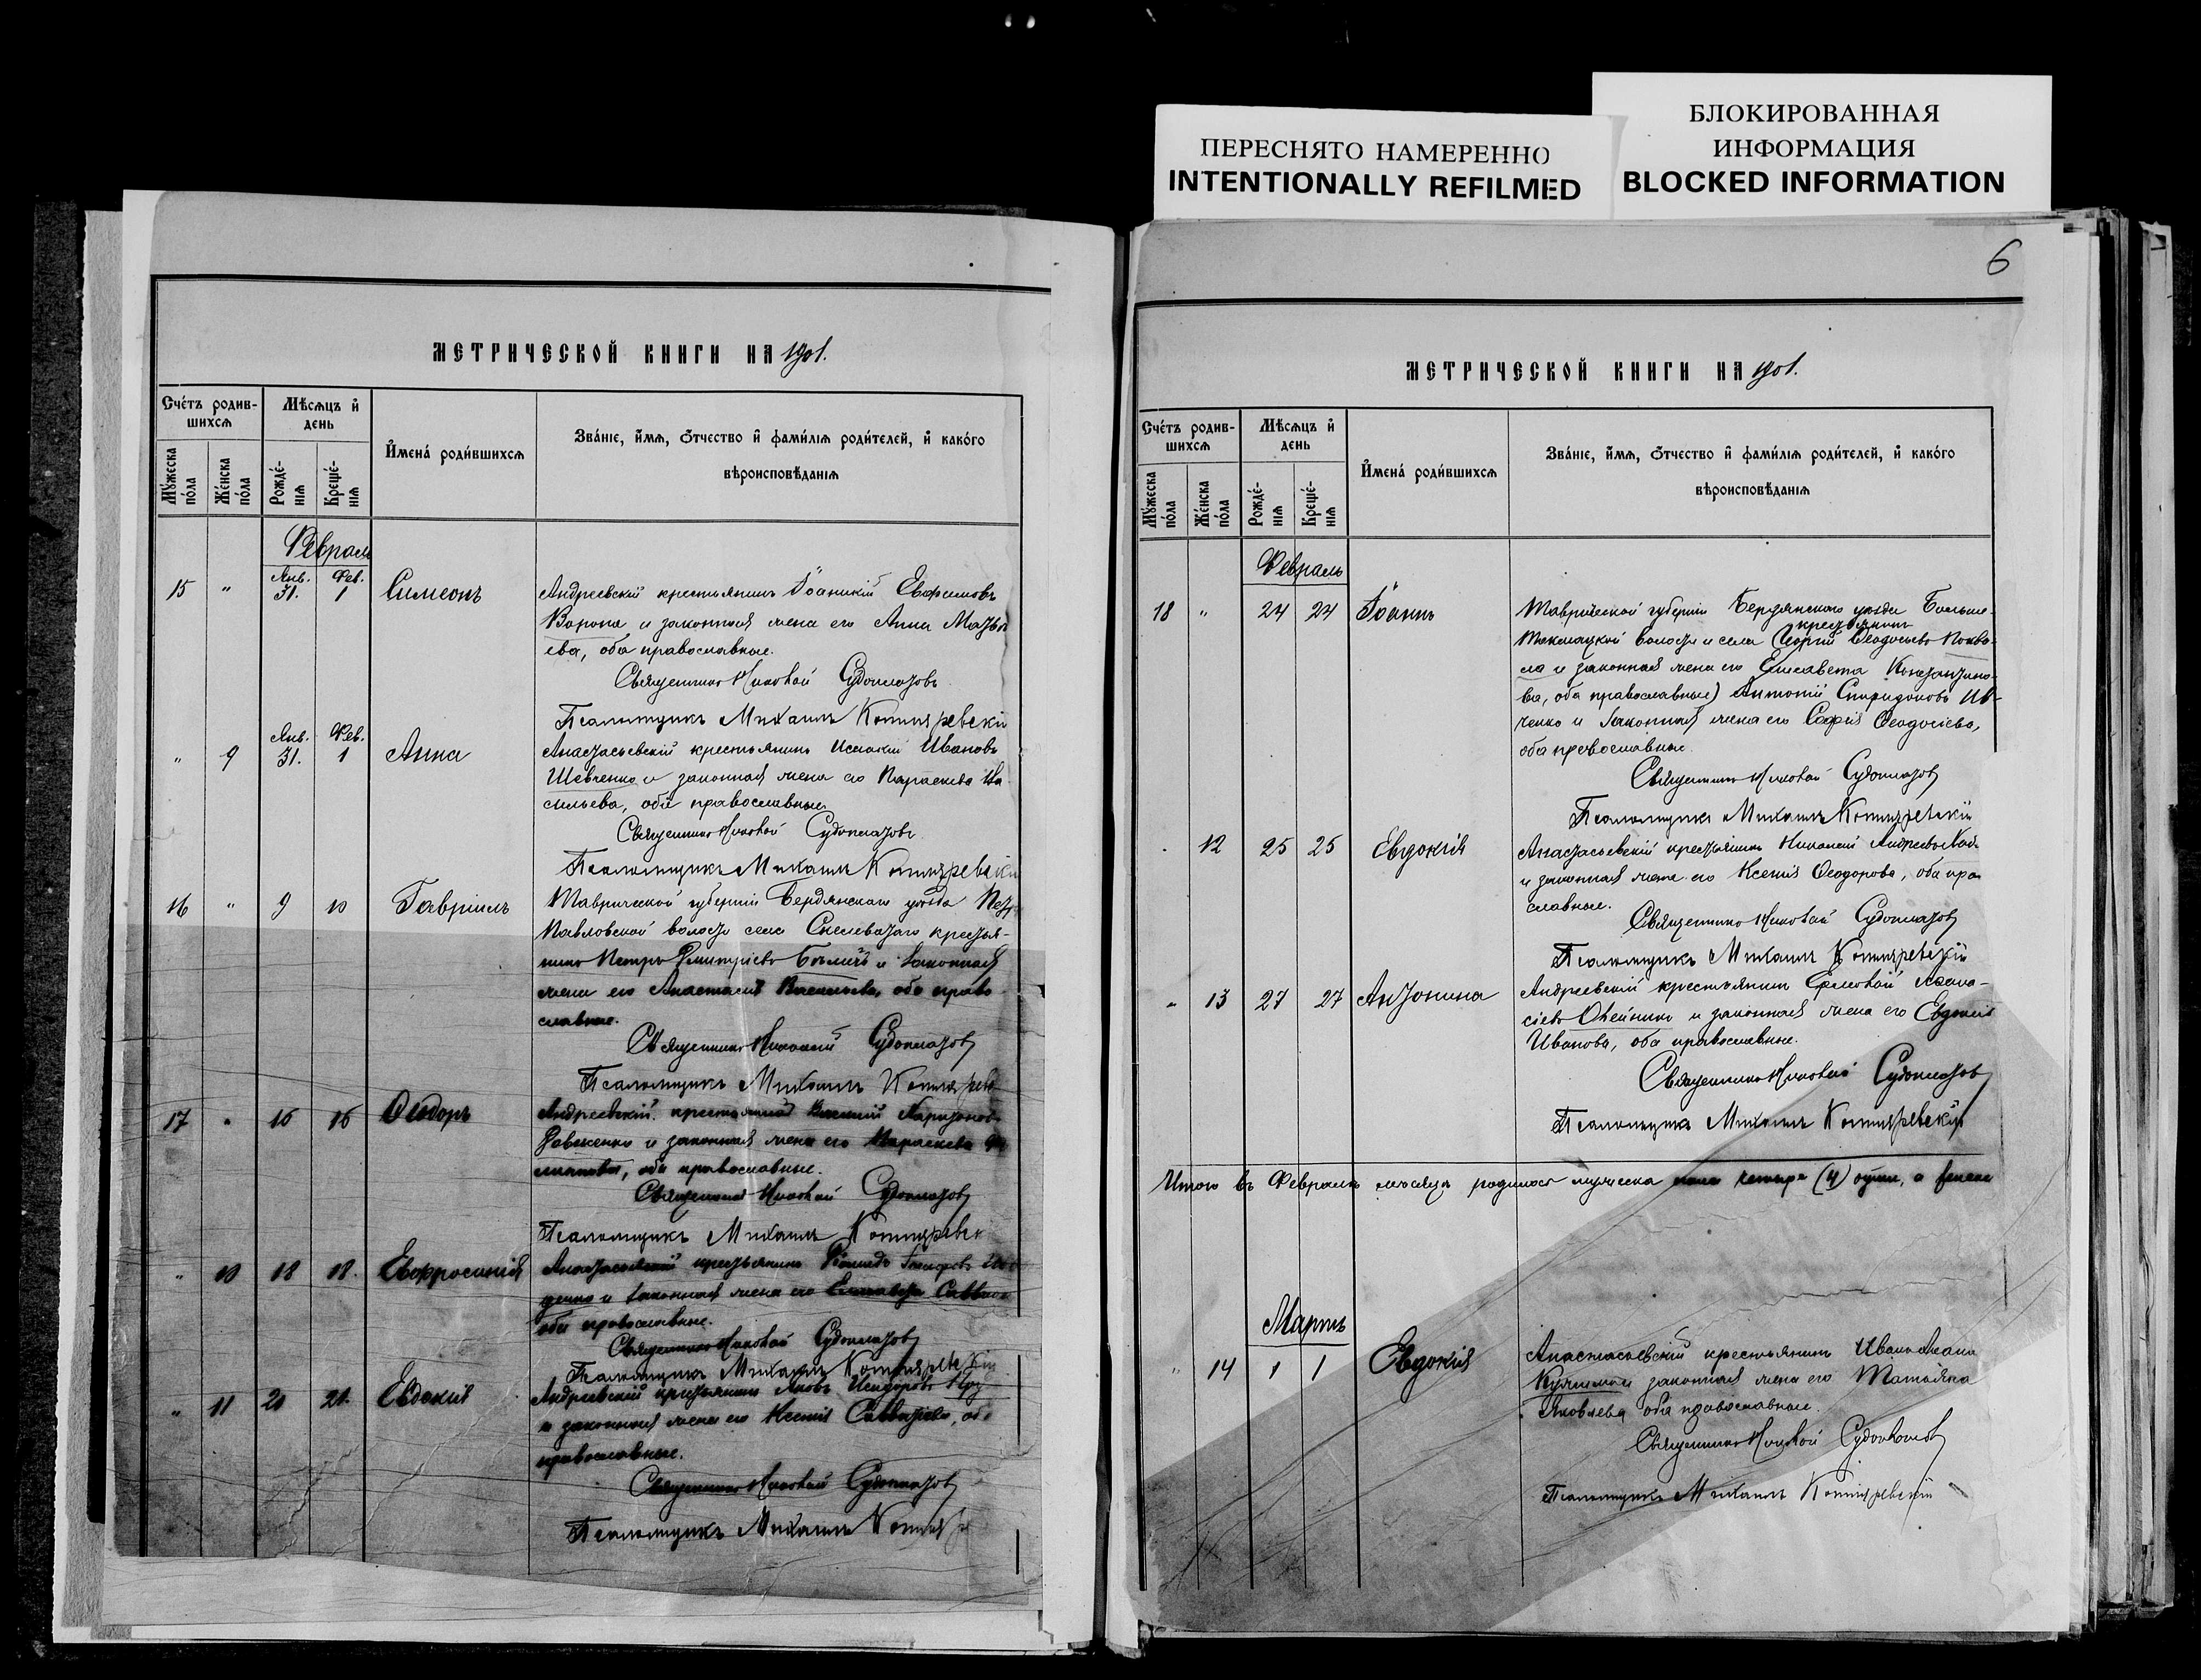 ПЕРЕСНЯТО НАМЕРЕННО
INTENTIONALLY REFILMED
БЛОКИРОВАННАЯ
ИНФОРМАЦИЯ
BLOCKED INFORMATION
МЕТРИЧЕСКОЙ КНИГИ НА 1901.
Счéтъ родив-
шихсѧ
Мѣсѧцъ и҆
день
И҆менá роди́вшихсѧ
Звáнїе, и҆́мѧ, ѻ҆́тчество и҆ фами́лїѧ роди́телей, и҆ какóгѡ
вѣроисповѣ́данїѧ
Мꙋ́жеска
пóла
Же́нска
пóла
Рождé-
нїѧ
Креще́-
нїѧ
Февраль
15 " Янв. 31. Фев. 1 Симеонъ Андреевскій крестьянинъ Іоаникій Евфимовъ
Ворона и законная жена его Анна
ева, оба православные.
Священникъ Николай Судоплатовъ
Псаломщикъ Михаилъ Котляревскій
" 9 Янв. 31. Фев. 1 Анна Анастасьевскій крестьянинъ Исаакій Ивановъ
Шевченко и законная жена его Параскева Ва-
сильева, оба православные
Священникъ Николай Судоплатовъ
Псаломщикъ Михаилъ Котляревскій
16 " 9 10 Гавріилъ Таврической губерніи Бердянскаго уѣзда
Павловской волости села крестья-
нинъ Петръ Димитріевъ и законная
жена его Анастасія Васильева, оба право-
славные.
Священникъ Николай Судоплатовъ
Псаломщикъ Михаилъ
17 " 16 16 Ѳеодоръ Андреевскій крестьянинъ
и законная жена его Параскева
оба православные.
Священникъ Николай Судоплатовъ
Псаломщикъ Михаилъ
" 10 18 18. Евфросинія Анастасьевскій крестьянинъ
и законная жена его Елисавета
оба православные.
Священникъ Николай Судоплатовъ
Псаломщикъ Михаилъ Котляревскій
" 11 20 21. Евдокія Андреевскій крестьянинъ Яковъ
и законная жена его Ксенія
православные.
Священникъ Николай Судоплатовъ
Псаломщикъ Михаилъ
6
МЕТРИЧЕСКОЙ КНИГИ НА 1901.
Счéтъ родив-
шихсѧ
Мѣсѧцъ и҆
день
И҆менá роди́вшихсѧ
Звáнїе, и҆́мѧ, ѻ҆́тчество и҆ фами́лїѧ роди́телей, и҆ какóгѡ
вѣроисповѣ́данїѧ
Мꙋ́жеска
пóла
Же́нска
пóла
Рождé-
нїѧ
Креще́-
нїѧ
Февраль
18 " 24 24 Іоаннъ Таврической губерніи Бердянскаго уѣзда Больше-
крестьянинъ
Токмацкой волости и села Георгій Ѳеодосьевъ
и законная жена его Елисавета Константино-
ва, оба православные) Антоній Спиридоновъ Ив-
ченко и законная жена его Софія Ѳеодосіева,
оба православные.
Священникъ Николай Судоплатовъ
Псаломщикъ Михаилъ Котляревскій
" 12 25 25 Евдокія Анастасьевскій крестьянинъ Николай Андреевъ
и законная жена его Ксенія Ѳеодорова, оба пра-
славные.
Священникъ Николай Судоплатовъ
Псаломщикъ Михаилъ Котляревскій
" 13 27 27 Антонина Андреевскій крестьянинъ Ермолай Аѳана-
сіевъ Олейникъ и законная жена его Евдокія
Иванова, оба православные.
Священникъ Николай Судоплатовъ
Псаломщикъ Михаилъ Котляревскій
Итого въ Февралѣ мѣсяцѣ родилось мужеска пола четыре (4) души, а женска
Мартъ
" 14 1 1 Евдокія Анастасьевскій крестьянинъ Иванъ
законная жена его Татьяна
Яковлева оба православные.
Священникъ Николай Судоплатовъ
Псаломщикъ Михаилъ Котляревскій